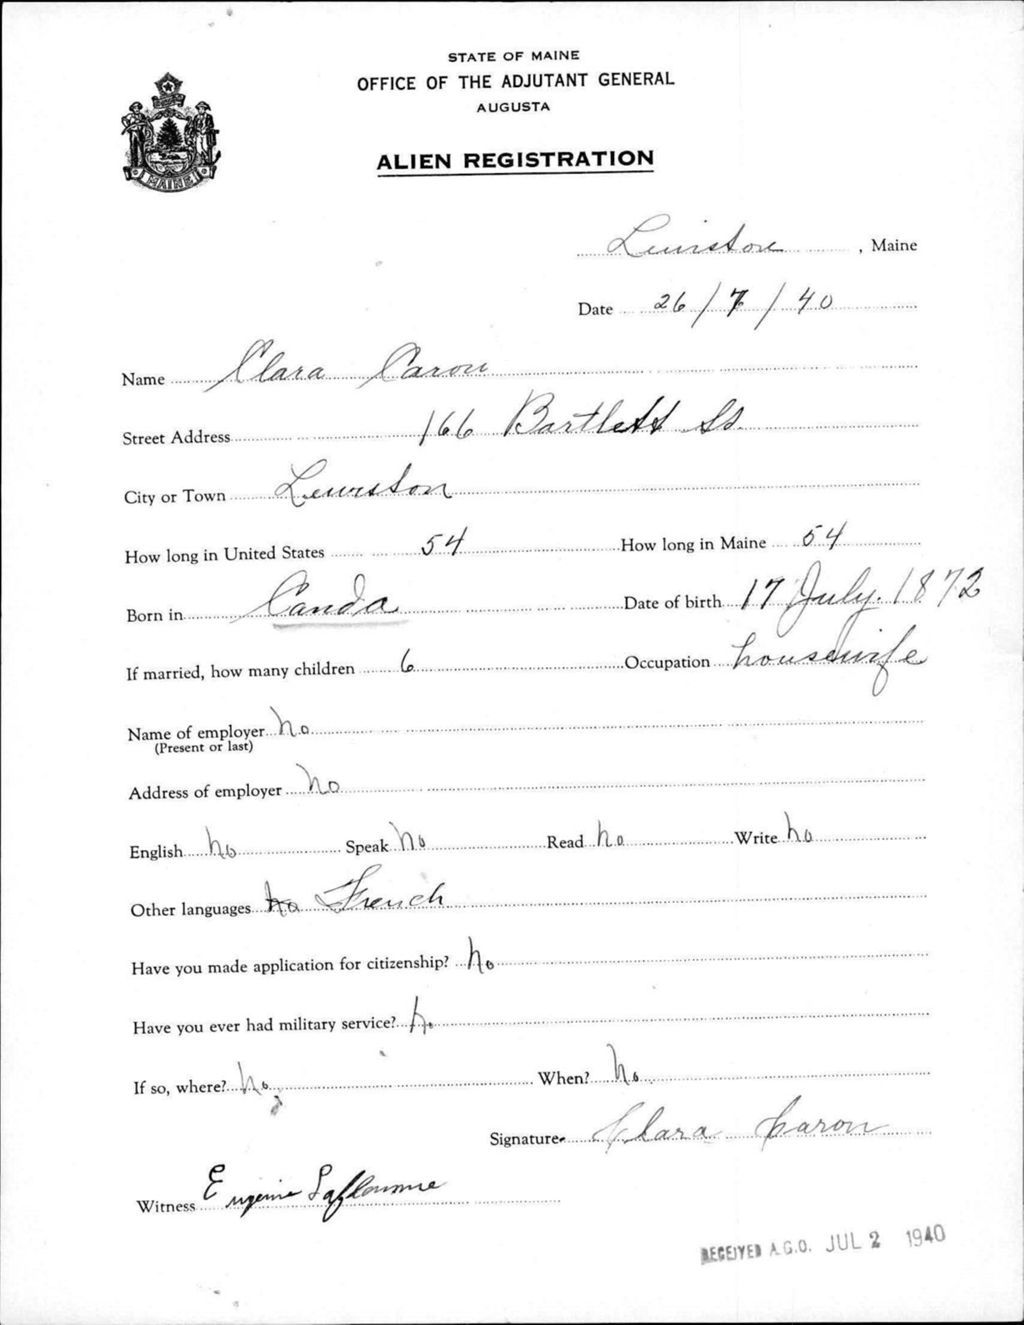 STATE OF MAINE
OFFICE OF THE ADJUTANT GENERAL
AUGUSTA
ALIEN REGISTRATION
MAINE
Lewiston, Maine
Date 26/7/40
Name Clara Caron
Street Address 166 Bartlett St
City or Town Lewiston
How long in United States 54 How long in Maine 54
Born in Canda Date of birth 17 July. 1872
If married, how many children 6 Occupation housewife
Name of employer no
(Present or last)
Address of employer no
English no Speak no Read no Write no
Other languages no French
Have you made application for citizenship? no
Have you ever had military service? no
If so, where? no When? no
Signature Clara Caron
Witness Eugenie Laflamme
RECEIVED A.G.O. JUL 2 1940